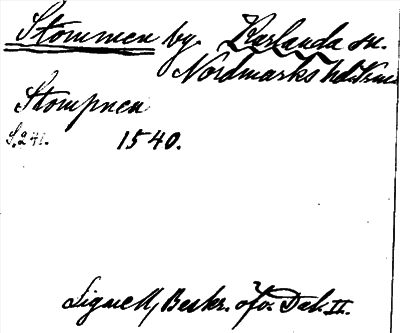 Stommen by Karlanda sn.
Nordmarks hd.
Stompnen
S. 241. 1540.
Lignell, Beskr. öfv. Dal. II.